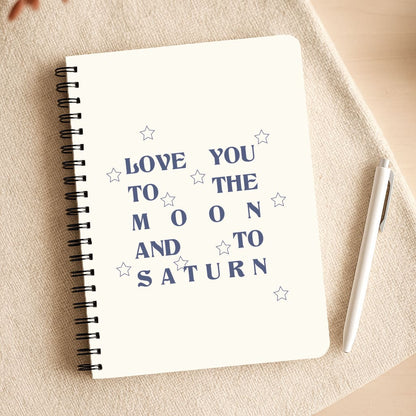 LOVE YOU
TO THE
MOON
AND TO
SATURN